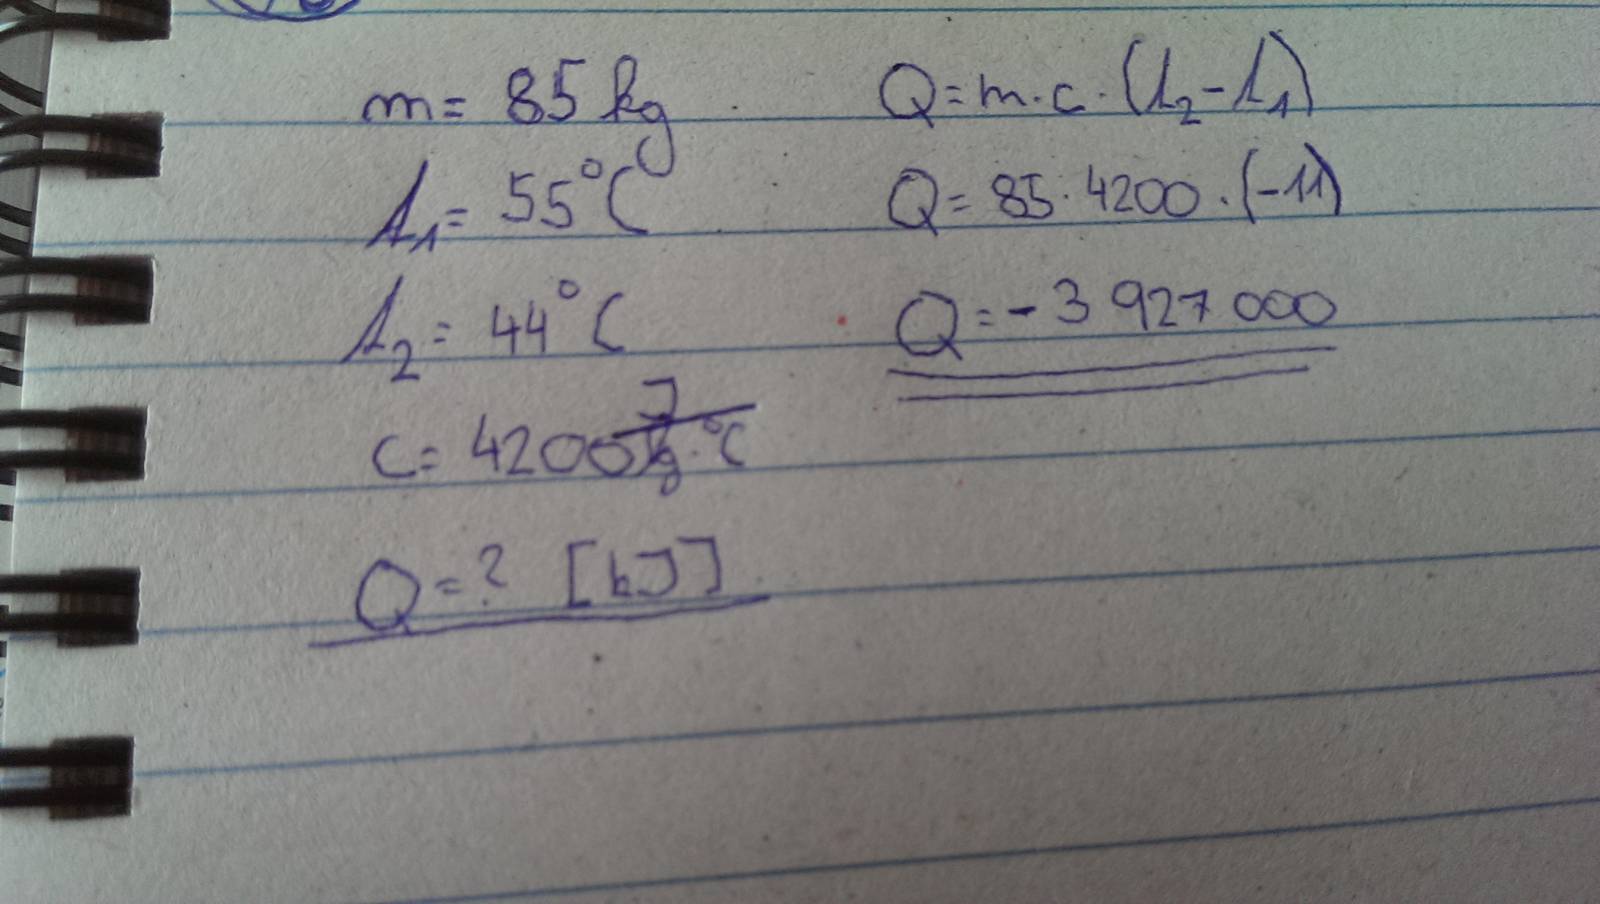 m= 85 kg
t₁= 55°C
t₂= 44°C
c= 4200 J/kg·°C
Q=? [kJ]
Q=m·c·(t₂-t₁)
Q= 85·4200·(-11)
Q=-3 927 000